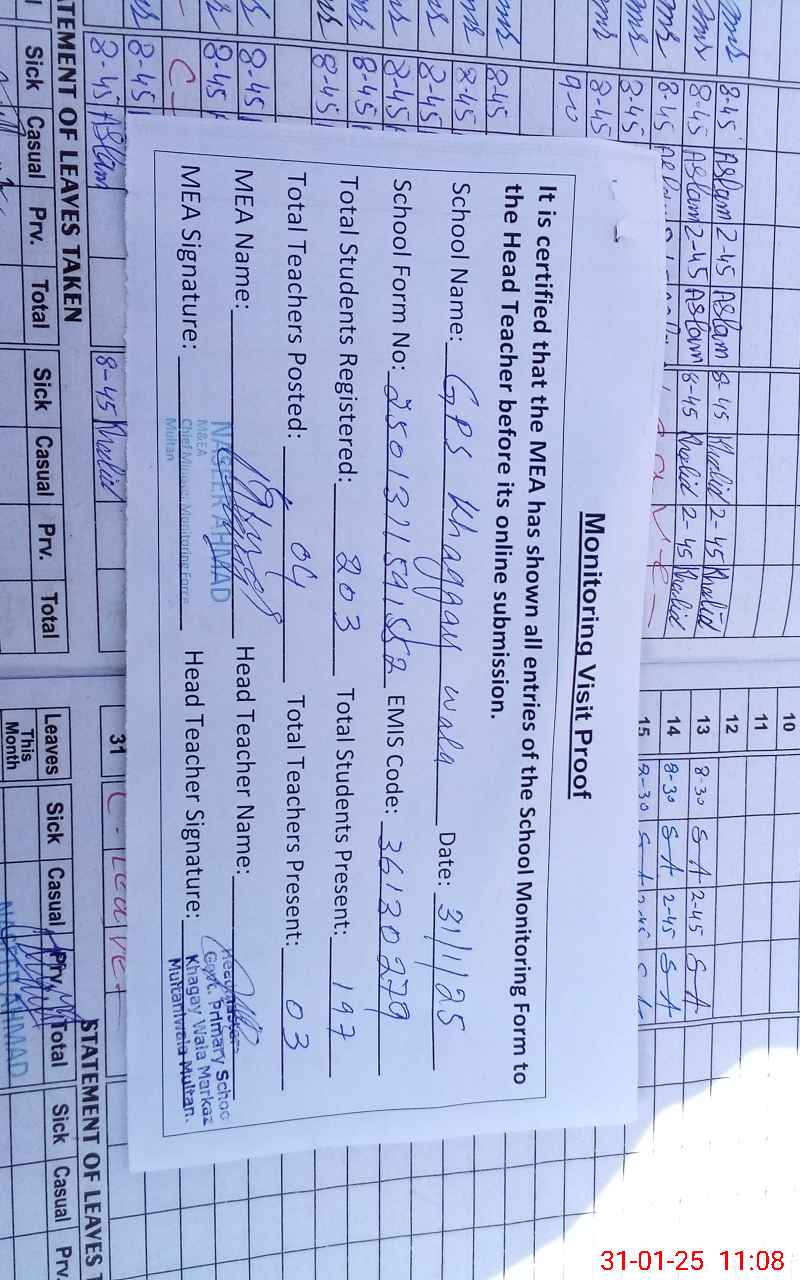 Monitoring Visit Proof
It is certified that the MEA has shown all entries of the School Monitoring Form to
the Head Teacher before its online submission.
School Name: GPS Khaggay wala Date: 31/1/25
School Form No: EMIS Code: 36130279
Total Students Registered: 203 Total Students Present: 197
Total Teachers Posted: 04 Total Teachers Present: 03
MEA Name: Head Teacher Name:
MEA Signature: Head Teacher Signature:
AHMAD
M&EA
Chief Minister Monitoring Force
Multan
Govt. Primary Schoo
Khagay Wala Markaz
Multaniwala Multan.
8-45 Aslam 2-45 Aslam 8-45 Khalid 2-45 Khalid
8-45 Aslam 2-45 Aslam 8-45 Khalid 2-45 Khalid
8-45
8-45
8-45
9-0
8-45
8-45
8-45
8-45
8-45
8-45
8-45
8-45
C-
8-45
8-45 Aslam 8-45 Khalid
10
11
12
13 8-30 S A 2-45 S A
14 8-30 S A 2-45 S A
15 8-30 S A
31 C-Leave-
TEMENT OF LEAVES TAKEN
Sick Casual Prv. Total Sick Casual Prv. Total
STATEMENT OF LEAVES T
Leaves Sick Casual Prv. Total Sick Casual Prv.
This
Month
AHMAD
31-01-25 11:08